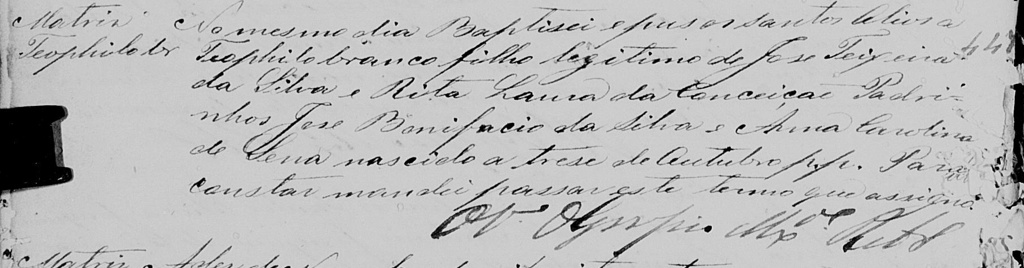 Matriz
Teophilo br
No mesmo dia Baptisei e pus os santos Oleos a
Teophilo branco filho legitimo de Jose Teixeira
da Silva e Rita Laura da Conceicao Padri-
nhos Jose Bonifacio da Silva e Anna Carolina
de Sena nascido a trese de Outubro p.p. Para
constar mandei passar este termo que assigno
Olympio
Matriz